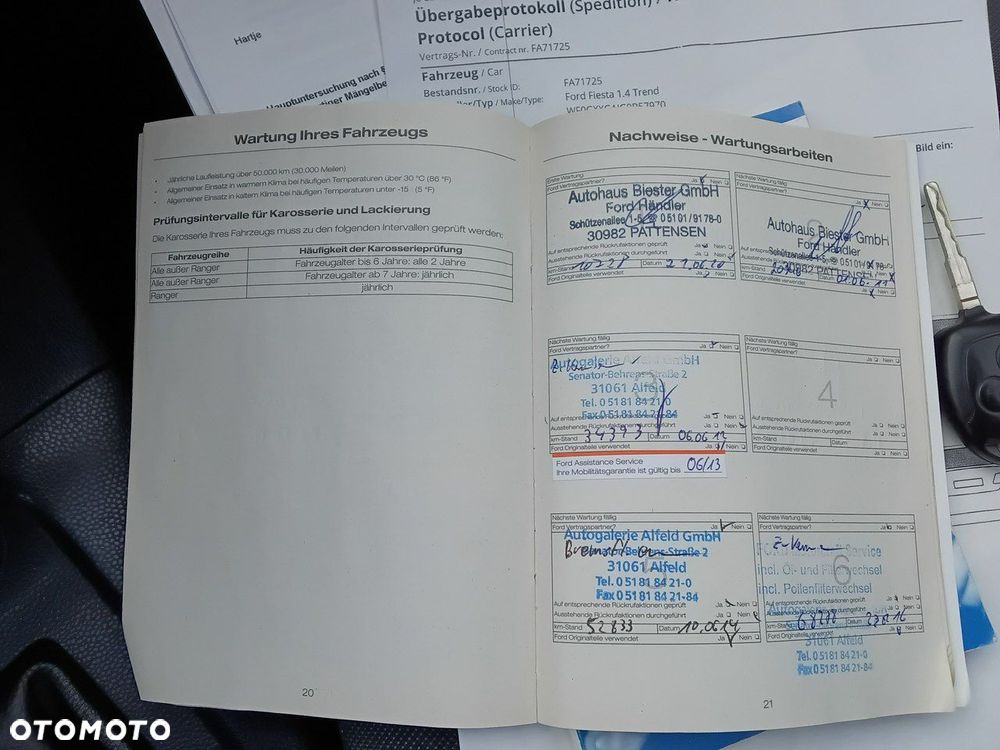 Hartje
Hauptuntersuchung nach §
Übergabeprotokoll (Spedition) /
Protocol (Carrier)
Vertrags-Nr. / Contract nr. FA71725
Fahrzeug / Car
Bestandsnr. / Stock ID: FA71725
/Typ / Make/Type: Ford Fiesta 1.4 Trend
Bild ein:
Wartung Ihres Fahrzeugs
• Jährliche Laufleistung über 50.000 km (30.000 Meilen)
• Allgemeiner Einsatz in warmem Klima bei häufigen Temperaturen über 30 °C (86 °F)
• Allgemeiner Einsatz in kaltem Klima bei häufigen Temperaturen unter -15 (5 °F)
Prüfungsintervalle für Karosserie und Lackierung
Die Karosserie Ihres Fahrzeugs muss zu den folgenden Intervallen geprüft werden:
Fahrzeugreihe Häufigkeit der Karosserieprüfung
Alle außer Ranger Fahrzeugalter bis 6 Jahre: alle 2 Jahre
Alle außer Ranger Fahrzeugalter ab 7 Jahre: jährlich
Ranger jährlich
20
Nachweise - Wartungsarbeiten
Erste Wartung
Ford Vertragspartner? Ja Nein
Autohaus Biester GmbH
Ford Händler
Schützenallee 1-5 ☎ 05101/9176-0
30982 PATTENSEN
Auf entsprechende Rückrufaktionen geprüft Ja Nein
Ausstehende Rückrufaktionen durchgeführt Ja Nein
km-Stand Datum
Ford Originalteile verwendet Ja Nein
Nächste Wartung fällig
Ford Vertragspartner? Ja Nein
2
Autohaus Biester GmbH
Ford Händler
Schützenallee 1-5
30982 PATTENSEN
km-Stand Datum
Ford Originalteile verwendet Ja Nein
Nächste Wartung fällig
Ford Vertragspartner? Ja Nein
3
Autogalerie Alfeld GmbH
Senator-Behrens-Straße 2
31061 Alfeld
Tel. 0 51 81 84 21-0
Fax 0 51 81 84 21-84
Auf entsprechende Rückrufaktionen geprüft Ja Nein
Ausstehende Rückrufaktionen durchgeführt Ja Nein
km-Stand 34393 Datum 06.06.12
Ford Originalteile verwendet Ja Nein
Ford Assistance Service
Ihre Mobilitätsgarantie ist gültig bis 06/13
Nächste Wartung fällig
Ford Vertragspartner? Ja Nein
4
Auf entsprechende Rückrufaktionen geprüft Ja Nein
Ausstehende Rückrufaktionen durchgeführt Ja Nein
km-Stand Datum
Ford Originalteile verwendet Ja Nein
Nächste Wartung fällig
Ford Vertragspartner? Ja Nein
5
Autogalerie Alfeld GmbH
Behrens-Straße 2
31061 Alfeld
Tel. 0 51 81 84 21-0
Fax 0 51 81 84 21-84
Auf entsprechende Rückrufaktionen geprüft Ja Nein
Ausstehende Rückrufaktionen durchgeführt Ja Nein
km-Stand 52833 Datum 10.06.14
Ford Originalteile verwendet Ja Nein
Nächste Wartung fällig
Ford Vertragspartner? Ja Nein
6
Service
incl. Öl- und Filterwechsel
incl. Pollenfilterwechsel
Auf entsprechende Rückrufaktionen geprüft Ja Nein
Ausstehende Rückrufaktionen durchgeführt Ja Nein
km-Stand Datum
Ford Originalteile verwendet Ja Nein
31061 Alfeld
Tel. 0 51 81 84 21-0
Fax 0 51 81 84 21-84
21
OTOMOTO